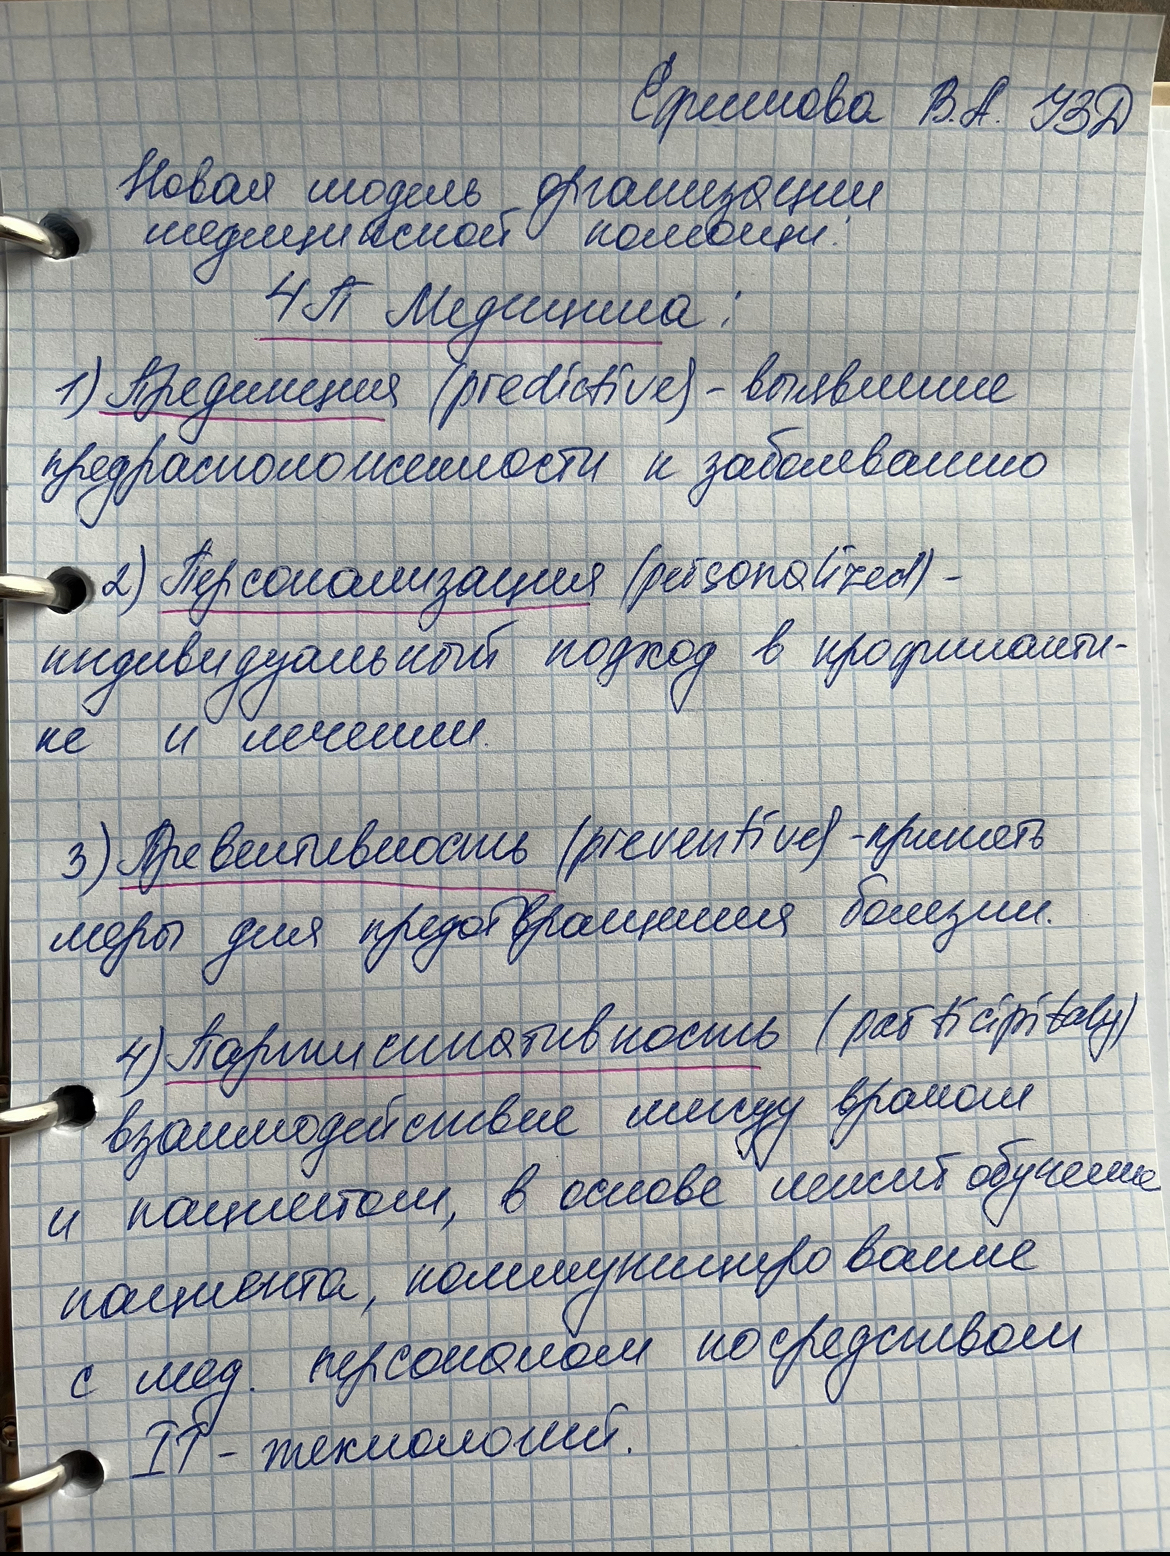 Ефимова В.А. УЗД
Новая модель организации
медицинской помощи:
4П Медицина:
1) Предикция (predictive) - выявление
предрасположенности к заболеванию
2) Персонализация (personalized) -
индивидуальный подход в профилакти-
ке и лечении.
3) Превентивность (preventive) - принять
меры для предотвращения болезни.
4) Партисипативность (participitaly)
взаимодействие между врачом
и пациентом, в основе лежит обучение
пациента, коммуницирование
с мед. персоналом посредством
IT - технологий.